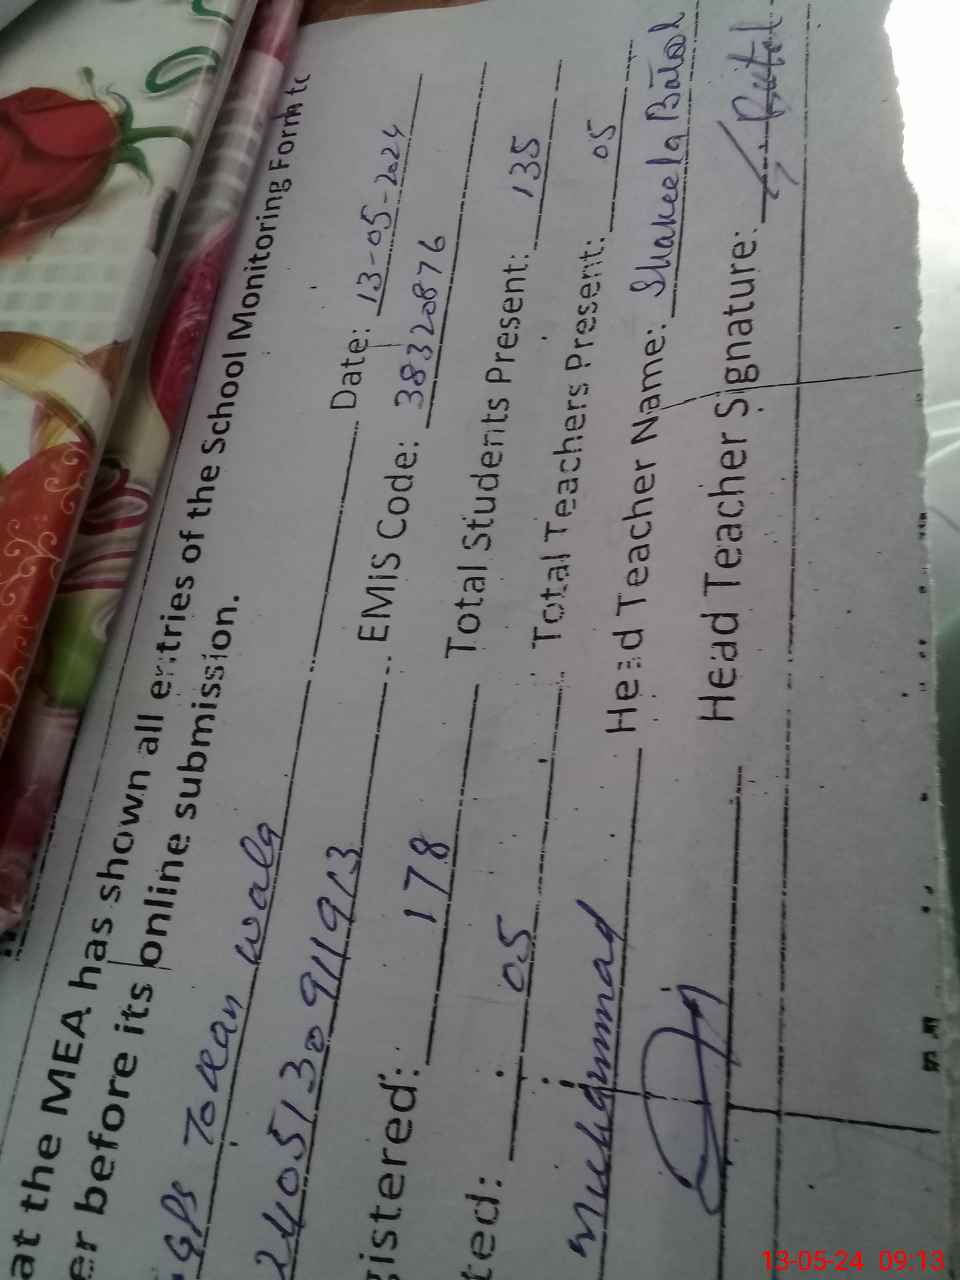 at the MEA has shown all entries of the School Monitoring Form to
er before its online submission.
GPS Torean Wala Date: 13-05-2024
2405130911913 EMIS Code: 38320876
gistered: 178 Total Students Present: 135
ted: 05 Total Teachers Present: 05
Muhammad Head Teacher Name: Shakeela Batool
Head Teacher Signature:
13-05-24 09:13